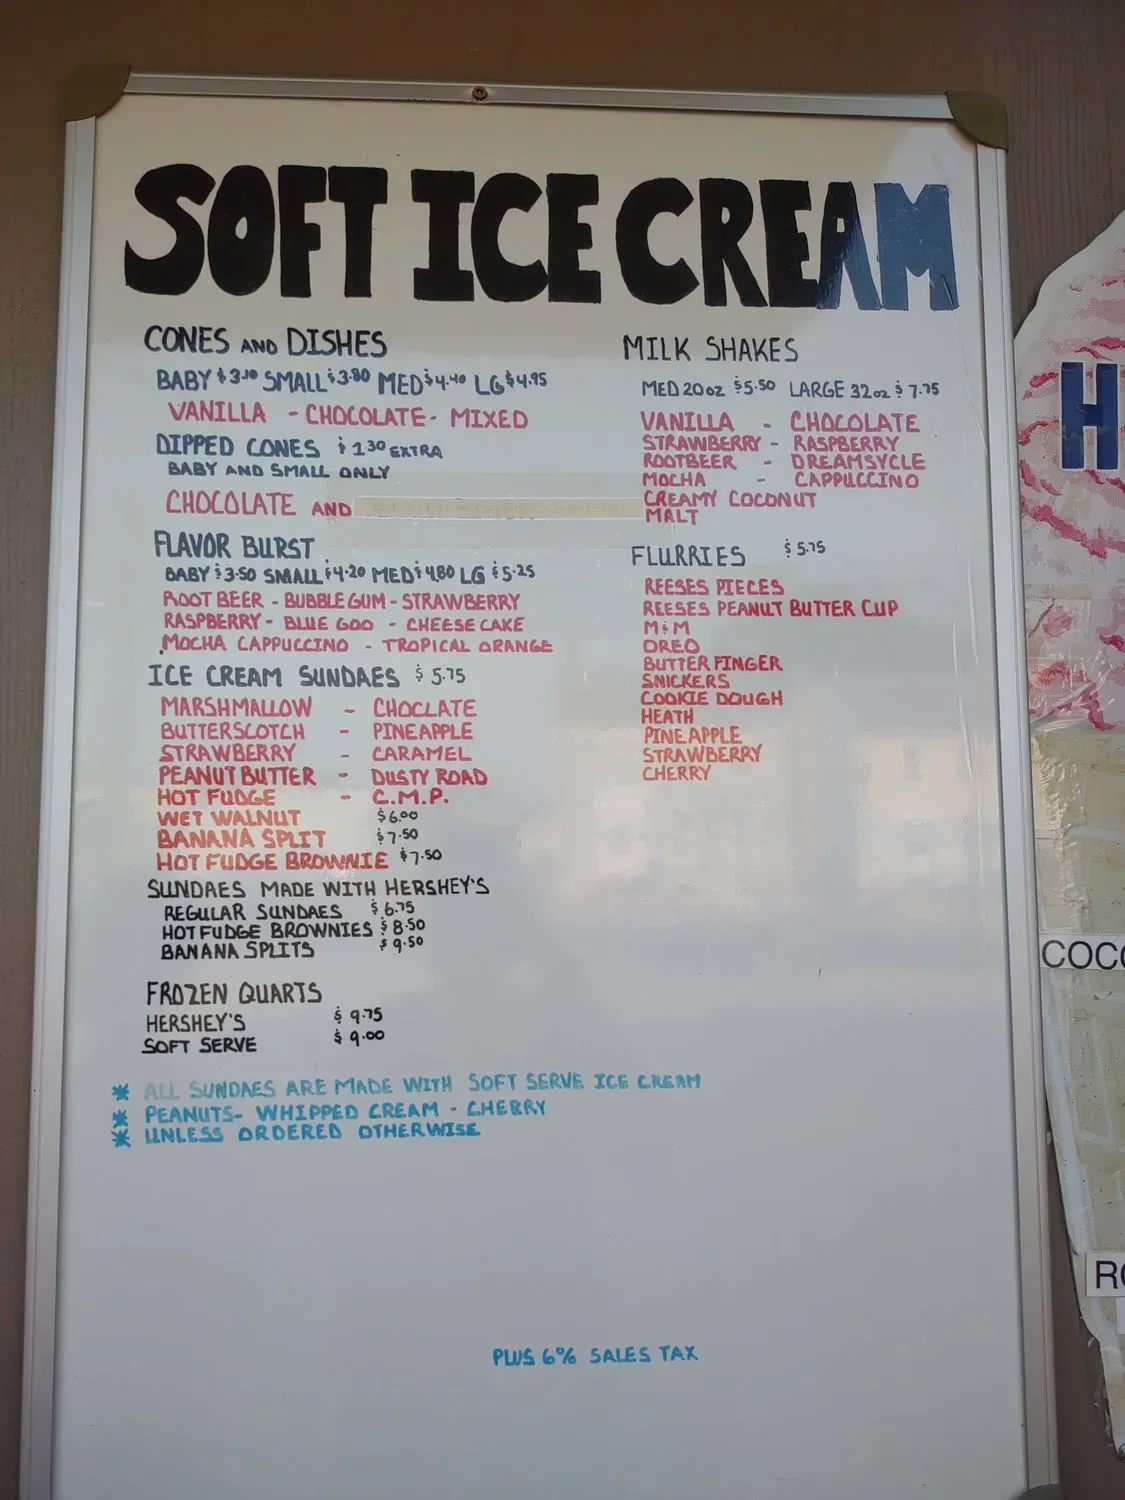 SOFT ICE CREAM
CONES AND DISHES
BABY $3.10 SMALL $3.80 MED $4.40 LG $4.95
VANILLA - CHOCOLATE - MIXED
DIPPED CONES $1.30 EXTRA
BABY AND SMALL ONLY
CHOCOLATE AND
FLAVOR BURST
BABY $3.50 SMALL $4.20 MED $4.80 LG $5.25
ROOT BEER - BUBBLE GUM - STRAWBERRY
RASPBERRY - BLUE GOO - CHEESE CAKE
MOCHA CAPPUCCINO - TROPICAL ORANGE
ICE CREAM SUNDAES $5.75
MARSHMALLOW - CHOCLATE
BUTTERSCOTCH - PINEAPPLE
STRAWBERRY - CARAMEL
PEANUT BUTTER - DUSTY ROAD
HOT FUDGE - C.M.P.
WET WALNUT $6.00
BANANA SPLIT $7.50
HOT FUDGE BROWNIE $7.50
SUNDAES MADE WITH HERSHEY'S
REGULAR SUNDAES $6.75
HOT FUDGE BROWNIES $8.50
BANANA SPLITS $9.50
FROZEN QUARTS
HERSHEY'S $9.75
SOFT SERVE $9.00
MILK SHAKES
MED 20 oz $5.50 LARGE 32 oz $7.75
VANILLA - CHOCOLATE
STRAWBERRY - RASPBERRY
ROOTBEER - DREAMSYCLE
MOCHA - CAPPUCCINO
CREAMY COCONUT
MALT
FLURRIES $5.75
REESES PIECES
REESES PEANUT BUTTER CUP
M&M
OREO
BUTTER FINGER
SNICKERS
COOKIE DOUGH
HEATH
PINEAPPLE
STRAWBERRY
CHERRY
* ALL SUNDAES ARE MADE WITH SOFT SERVE ICE CREAM
* PEANUTS - WHIPPED CREAM - CHERRY
* UNLESS ORDERED OTHERWISE
PLUS 6% SALES TAX
H
COC
R